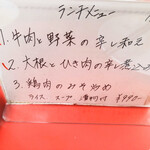 ランチメニュー
1. 牛肉と野菜の辛し和え
2. 大根とひき肉の辛し煮込み
3. 鶏肉のみそ炒め
ライス スープ 漬物付